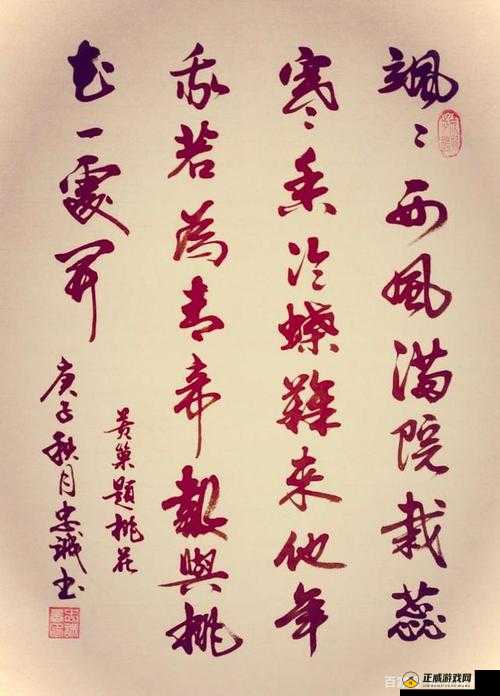 颯々西風滿院栽蕊
寒香冷蝶難來他年
我若為青帝報與桃
花一處開
黄巢題桃花
庚子秋月忠誠書
百
正威游戏网